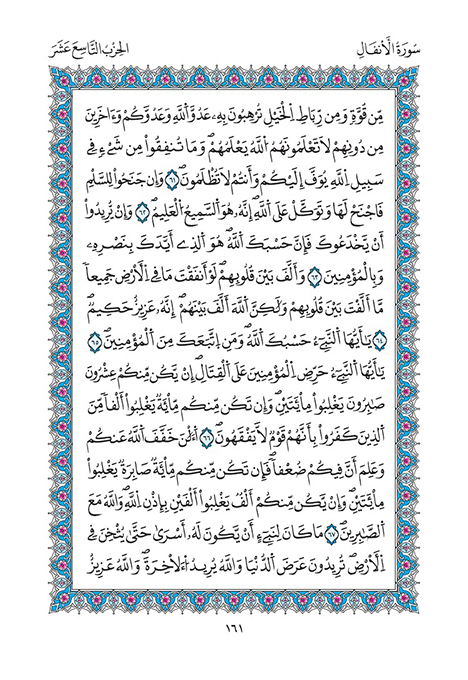 سُورَةُ الْأَنفَالِ
الحِزْبُ التَّاسِعَ عَشَرَ
مِّن قُوَّةٍ وَمِن رِّبَاطِ اِ۬لْخَيْلِ تُرْهِبُونَ بِهِۦ عَدُوَّ اَ۬للَّهِ وَعَدُوَّكُمْ وَءَاخَرِينَ
مِن دُونِهِمْ لَا تَعْلَمُونَهُمُ اُ۬للَّهُ يَعْلَمُهُمْۖ وَمَا تُنفِقُواْ مِن شَيْءٖ فِے
سَبِيلِ اِ۬للَّهِ يُوَفَّ إِلَيْكُمْ وَأَنتُمْ لَا تُظْلَمُونَۖ ٦١ وَإِن جَنَحُواْ لِلسَّلْمِ
فَاجْنَحْ لَهَا وَتَوَكَّلْ عَلَى اَ۬للَّهِۖ إِنَّهُۥ هُوَ اَ۬لسَّمِيعُ اُ۬لْعَلِيمُۖ ٦٢ وَإِنْ يُّرِيدُواْ
أَنْ يَّخْدَعُوكَ فَإِنَّ حَسْبَكَ اَ۬للَّهُۖ هُوَ اَ۬لذِےٓ أَيَّدَكَ بِنَصْرِهِۦ
وَبِالْمُؤْمِنِينَ ٦٣ وَأَلَّفَ بَيْنَ قُلُوبِهِمْۖ لَوَ اَنفَقْتَ مَا فِے اِ۬لْأَرْضِ جَمِيعاٗ
مَّا أَلَّفْتَ بَيْنَ قُلُوبِهِمْ وَلَٰكِنَّ اَ۬للَّهَ أَلَّفَ بَيْنَهُمْۖ إِنَّهُۥ عَزِيزٌ حَكِيمٞۖ
٦٤ يَٰٓأَيُّهَا اَ۬لنَّبِےٓءُ حَسْبُكَ اَ۬للَّهُ وَمَنِ اِ۪تَّبَعَكَ مِنَ اَ۬لْمُؤْمِنِينَۖ ٦٥
يَٰٓأَيُّهَا اَ۬لنَّبِےٓءُ حَرِّضِ اِ۬لْمُؤْمِنِينَ عَلَى اَ۬لْقِتَالِۖ إِنْ يَّكُن مِّنكُمْ عِشْرُونَ
صَٰبِرُونَ يَغْلِبُواْ مِاْئَتَيْنِۖ وَإِن تَكُن مِّنكُم مِّاْئَةٞ يَغْلِبُوٓاْ أَلْفاٗ مِّنَ
اَ۬لذِينَ كَفَرُواْ بِأَنَّهُمْ قَوْمٞ لَّا يَفْقَهُونَۖ ٦٦ اَ۬لْـَٰٔنَ خَفَّفَ اَ۬للَّهُ عَنكُمْ
وَعَلِمَ أَنَّ فِيكُمْ ضُعْفاٗۖ فَإِن تَكُن مِّنكُم مِّاْئَةٞ صَابِرَةٞ يَغْلِبُواْ
مِاْئَتَيْنِۖ وَإِنْ يَّكُن مِّنكُمُۥٓ أَلْفٞ يَغْلِبُوٓاْ أَلْفَيْنِ بِإِذْنِ اِ۬للَّهِۖ وَاللَّهُ مَعَ
اَ۬لصَّٰبِرِينَۖ ٦٧ مَا كَانَ لِنَبِےٓءٍ أَنْ يَّكُونَ لَهُۥٓ أَسْرَىٰ حَتَّىٰ يُثْخِنَ فِے
اِ۬لْأَرْضِۖ تُرِيدُونَ عَرَضَ اَ۬لدُّنْيَا وَاللَّهُ يُرِيدُ اُ۬لَاخِرَةَۖ وَاللَّهُ عَزِيزٌ
١٦١